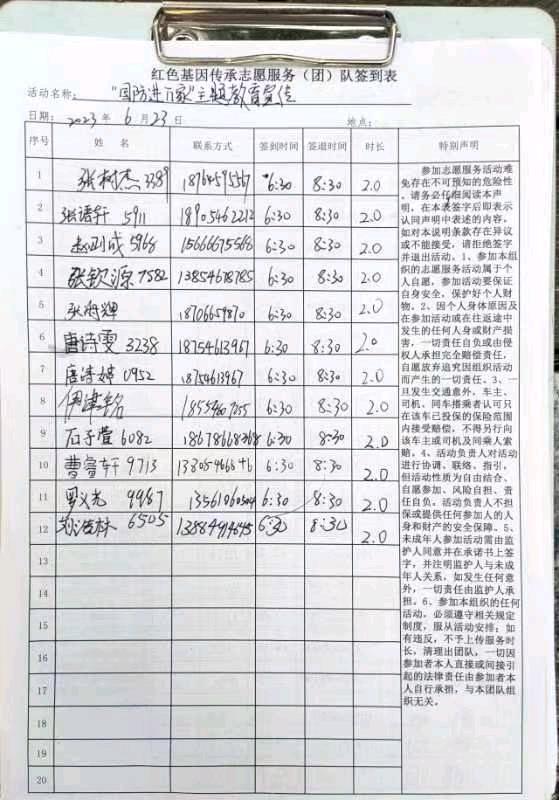 红色基因传承志愿服务（团）队签到表
活动名称：“国防进万家”主题教育宣传
日期：2023年6月23日 地点：
序号 姓名 联系方式 签到时间 签退时间 时长 特别声明
1 张树杰 3389 18764595567 6:30 8:30 2.0
2 张语轩 5911 18905462212 6:30 8:30 2.0
3 赵刚成 5968 15666675568 6:30 8:30 2.0
4 张钦源 7582 13854678785 6:30 8:30 2.0
5 张 辉 18706659870 6:30 8:30 2.0
6 唐诗雯 3238 18754613967 6:30 8:30 2.0
7 唐诗婷 0952 18754613967 6:30 8:30 2.0
8 伊建铭 6:30 8:30 2.0
9 石子萱 6082 18678668368 6:30 8:30 2.0
10 曹睿轩 9713 6:30 8:30 2.0
11 9967 13561060504 6:30 8:30 2.0
12 林 6505 6:30 8:30 2.0
13
14
15
16
17
18
19
20
参加志愿服务活动难
免存在不可预知的危险性
，请务必仔细阅读本声
明，在本表签字后即表示
认同声明中表述的内容。
如对本说明条款存在异议
或不能接受，请拒绝签字
并退出活动。1、参加本组
织的志愿服务活动属于个
人自愿，参加活动要保证
自身安全，保护好个人财
物。2、因个人身体原因及
在参加活动或在往返途中
发生的任何人身或财产损
害，一切责任自负或由侵
权人承担完全赔偿责任，
自愿放弃追究因组织活动
而产生的一切责任。3、一
旦发生交通意外，车主、
司机、同车搭乘者认可只
在该车已投保的保险范围
内接受赔偿，不得另行向
该车主或司机及同乘人索
赔。4、活动负责人对活动
进行协调、联络、指引，
但活动性质为自由结合、
自愿参加、风险自担、责
任自负。活动负责人不担
保或提供任何参加人的人
身和财产的安全保障。5、
未成年人参加活动需由监
护人同意并在承诺书上签
字，并注明监护人与未成
年人关系，如发生任何意
外，一切责任由监护人承
担。6、参加本组织的任何
活动，必须遵守相关规定
制度，服从活动安排；如
有违反，不予上传服务时
长，清理出团队，一切因
参加者本人直接或间接引
起的法律责任由参加者本
人自行承担，与本团队组
织无关。